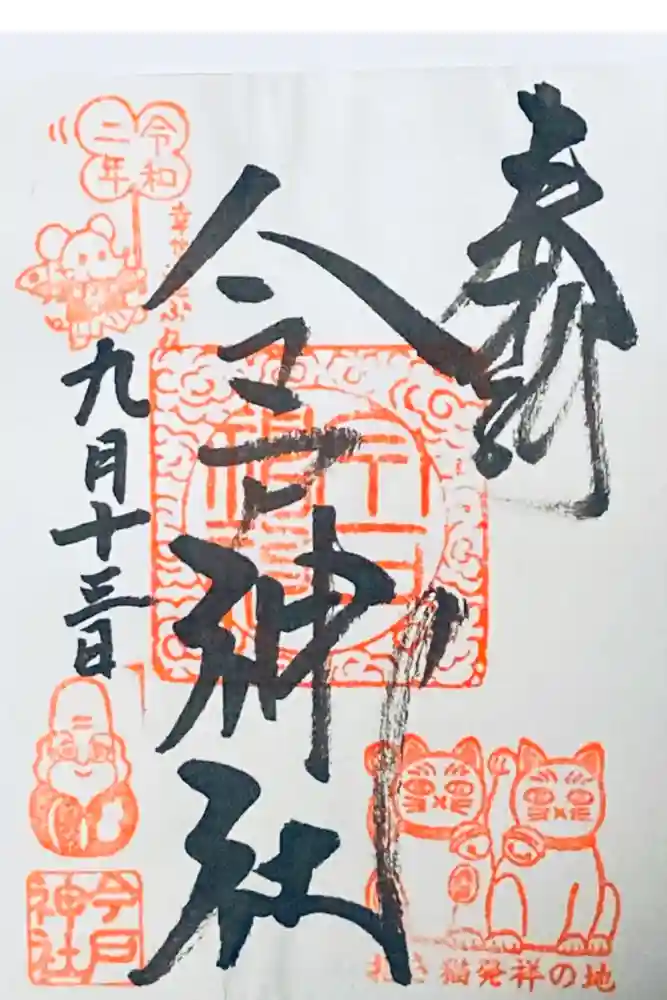 奉拝
今戸神社
令和
二年
九月十三日
今戸
神社
招き猫発祥の地